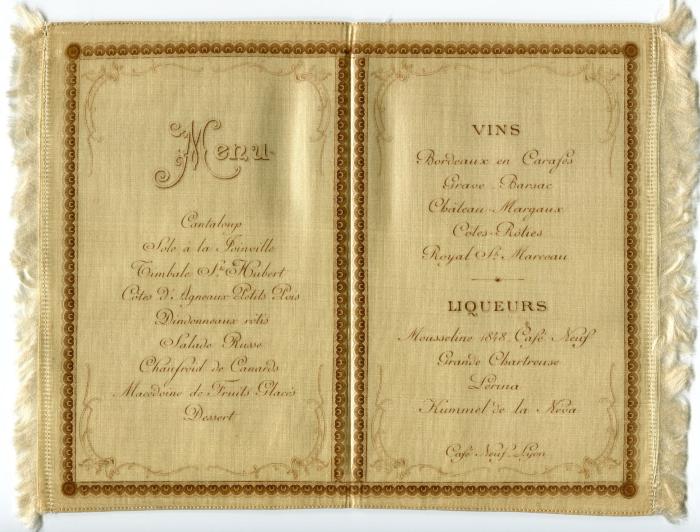 Menu
Cantaloup
Sole à la Joinville
Timbale St Hubert
Côtes d'Agneaux Petits Pois
Dindonneaux rôtis
Salade Russe
Chaufroid de Canards
Macédoine de Fruits Glacés
Dessert
VINS
Bordeaux en Carafes
Grave-Barsac
Château-Margaux
Côtes-Rôties
Royal St Marceau
LIQUEURS
Mousseline 1848 Café Neuf
Grande Chartreuse
Lérina
Kummel de la Néva
Café Neuf-Lyon